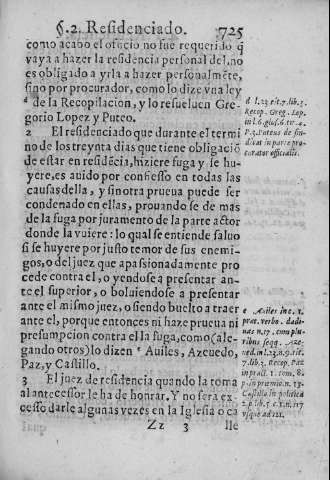 §. 2. Residenciado. 725
como acabo el oficio no fue requerido q̃
vaya a hazer la residencia personal del. no
es obligado a yrla a hazer personalmẽte,
sino por procurador, como lo dize vna ley
ᵈ de la Recopilacion, y lo resueluen Gre-
gorio Lopez y Puteo.
2 El residenciado que durante el termi
no de los treynta dias que tiene obligaciõ
de estar en residẽcia, hiziere fuga y se hu-
yere, es auido por confiesso en todas las
causas della, y sin otra prueua puede ser
condenado en ellas, prouando se de mas
de la fuga por juramento de la parte actor
donde la vuiere: lo qual se entiende saluo
si se huyere por justo temor de sus enemi-
gos, o del juez que apasionadamente pro
cede contra el, o yendose a presentar an-
te el superior, o boluiendose a presentar
ante el mismo juez, o siendo buelto a traer
ante el, porque entonces ni haze prueua ni
presumpcion contra el la fuga, como (ale-
gando otros) lo dizen ᵉ Auiles, Azeuedo,
Paz, y Castillo.
3 El juez de residencia quando la toma
al antecessor le ha de honrar. Y no sera ex-
cesso darle algunas vezes en la Iglesia o ca
Zz 3 lle
d l. 23. tit. 7. lib. 3.
Recop. Greg. Lop.
in l. 6. glos. 6. tit. 4.
P. 3. Puteus de sin-
dicat. in parte pro-
curator officialis.
e Auiles in c. 1.
prat. verbo. dadi-
uas n. 17. cum plu-
ribus seqq. Aze-
ued. in l. 23. n. 9. tit.
7. lib. 3. Recop. Paz
in pract. 1. tom. 8.
p. in præmio n. 13.
Castillo in politica
2. p. lib. 5. c. 1. n. 117
vsque ad 121.